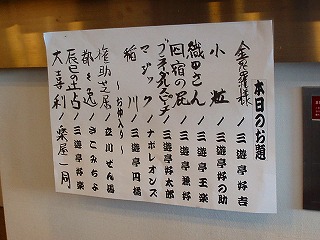 本日のお題
金明竹 / 三遊亭好吉
小粒 / 三遊亭好の助
織田さん / 三遊亭王楽
四宿の屁 / 三遊亭兼好
三遊亭好太郎
マジック / ナポレオンズ
稲川 / 三遊亭円橘
～お仲入り～
権助芝居 / 立川ぜん馬
都々逸
辰巳の辻占 / 三遊亭好楽
大喜利 / 楽屋一同